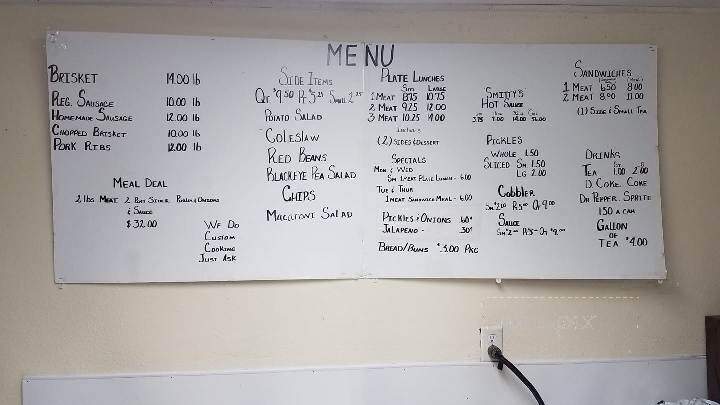 MENU
BRISKET 14.00 lb
REG. SAUSAGE 10.00 lb
HOMEMADE SAUSAGE 12.00 lb
CHOPPED BRISKET 10.00 lb
PORK RIBS 12.00 lb
MEAL DEAL
2 lbs MEAT 2 PINT SIDES PICKLES & ONIONS
& SAUCE
$32.00
WE DO
CUSTOM
COOKING
JUST ASK
SIDE ITEMS
QT $9.50 PT $5.25 SMALL 2.25
POTATO SALAD
COLESLAW
RED BEANS
BLACKEYE PEA SALAD
CHIPS
MACARONI SALAD
PLATE LUNCHES
SM LARGE
1 MEAT 8.75 10.75
2 MEAT 9.25 12.00
3 MEAT 10.25 14.00
(2) SIDES & DESSERT
SPECIALS
MON & WED
SM 1 MEAT PLATE LUNCH - 6.00
TUE & THUR
1 MEAT SANDWICH MEAL - 6.00
PICKLES & ONIONS .60¢
JALAPENO - .30¢
BREAD/BUNS $3.00 PKG
SMITTY'S
HOT SAUCE
3.75 7.00 14.00
PICKLES
WHOLE 1.50
SLICED SM 1.50
LG 2.00
COBBLER
SM $2.00 PT 5.00 QT 9.00
SAUCE
SM $2.00 PT 5.00 QT $9.00
SANDWICHES
1 MEAT 6.50 8.00
2 MEAT 8.00 11.00
(1) SIDE & SMALL TEA
DRINKS
TEA 1.00 2.00
D. COKE, COKE
DR PEPPER, SPRITE
1.50 A CAN
GALLON
OF
TEA $4.00